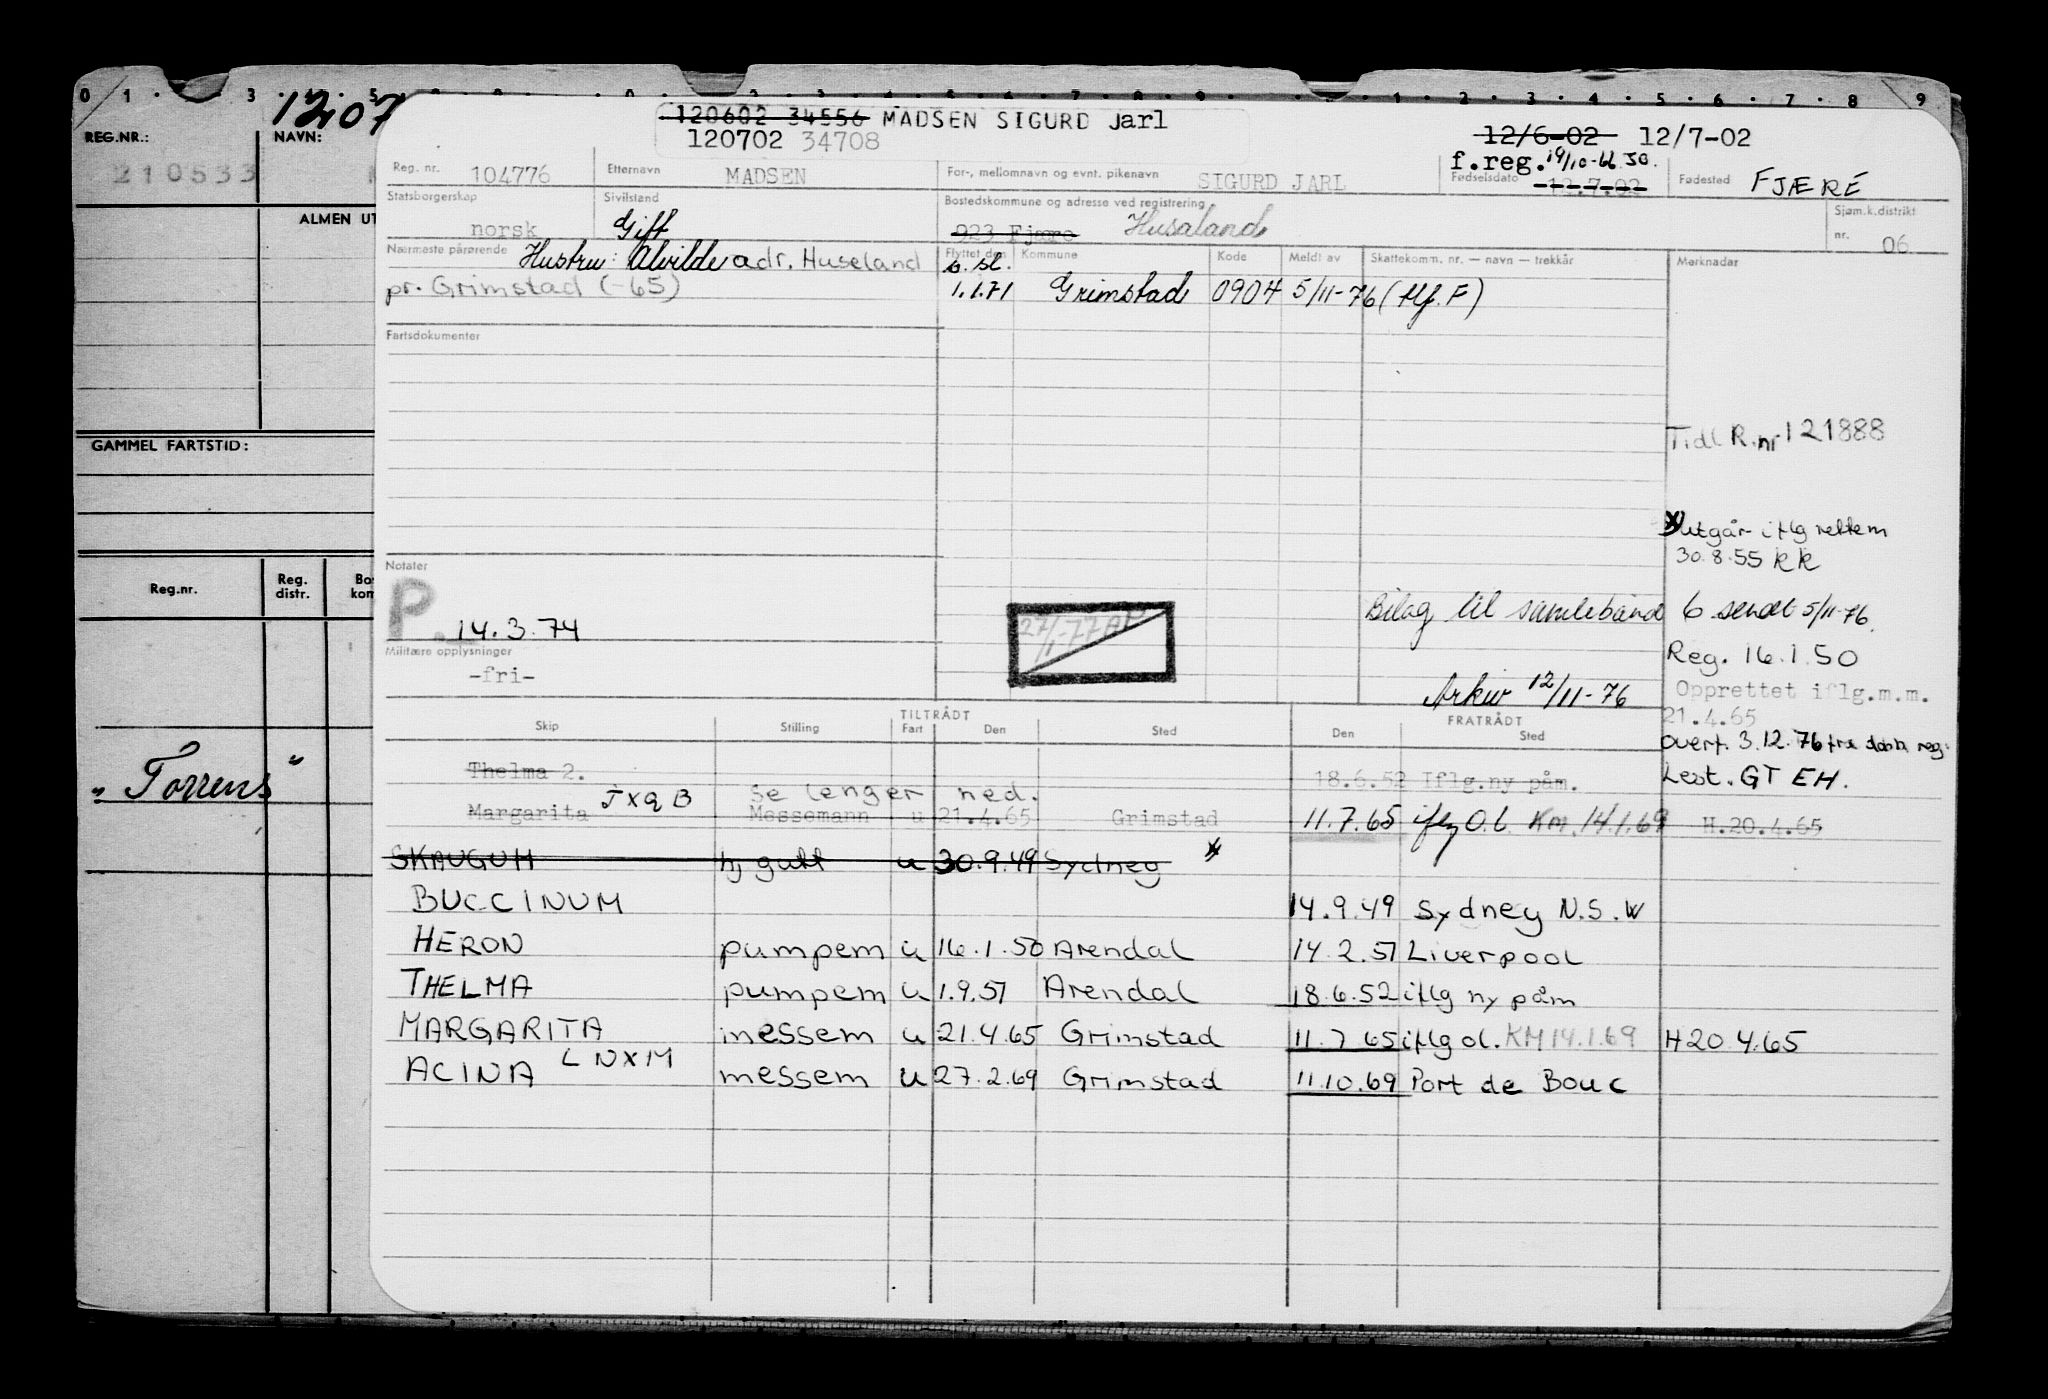 0 1 3 5 1 2 3 4 5 6 7 8 9
1207
REG.NR.: NAVN:
210533
ALMEN UT
GAMMEL FARTSTID:
Reg.nr. Reg. distr. Bos kom
„Torrens"
120602 34556 MADSEN SIGURD Jarl
120702 34708
12/6-02 12/7-02
f.reg. 19/10-66 JO.
Reg. nr. 104776 Etternavn MADSEN For-, mellomnavn og evnt. pikenavn SIGURD JARL Fødselsdato 12.7.02 Fødested FJÆRE
Statsborgerskap norsk Sivilstand Gift Bostedskommune og adresse ved registrering 923 Fjære Husaland Sjøm.k.distrikt nr. 06
Nærmeste pårørende Hustru: Alvilde adr. Huseland Flyttet den Kommune Kode Meldt av Skattekomm. nr. — navn — trekkår Merknader
s. sl.
pr. Grimstad (-65) 1.1.71 Grimstad 0904 5/11-76 (tlf. F)
Fartsdokumenter
Tidl R.nr 121888
utgår iflg rettem
30.8.55 KK
Notater
P. 14.3.74
27/1-77 AF
Bilag til samlebånd 6 sendt 5/11-76.
Militære opplysninger
-fri-
Reg. 16.1.50
Opprettet iflg.m.m.
21.4.65
Arkiv 12/11-76
overf. 3.12.76 fra dob. reg.
Lest. GT EH.
TILTRÅDT FRATRÅDT
Skip Stilling Fart Den Sted Den Sted
Thelma 2. 18.6.52 Iflg.ny påm.
JXQB se lenger ned.
Margarita Messemann u 21.4.65 Grimstad 11.7.65 iflg O.l. KM.14.1.69 H.20.4.65
SKAUGUM hj gutt u 30.9.49 Sydney *
BUCCINUM 14.9.49 Sydney N.S.W
HERON pumpem u 16.1.50 Arendal 14.2.51 Liverpool
THELMA pumpem u 1.9.51 Arendal 18.6.52 iflg ny påm
MARGARITA messem u 21.4.65 Grimstad 11.7.65 iflg ol. KM 14.1.69 H20.4.65
ACINA LNXM messem u 27.2.69 Grimstad 11.10.69 Port de Bouc